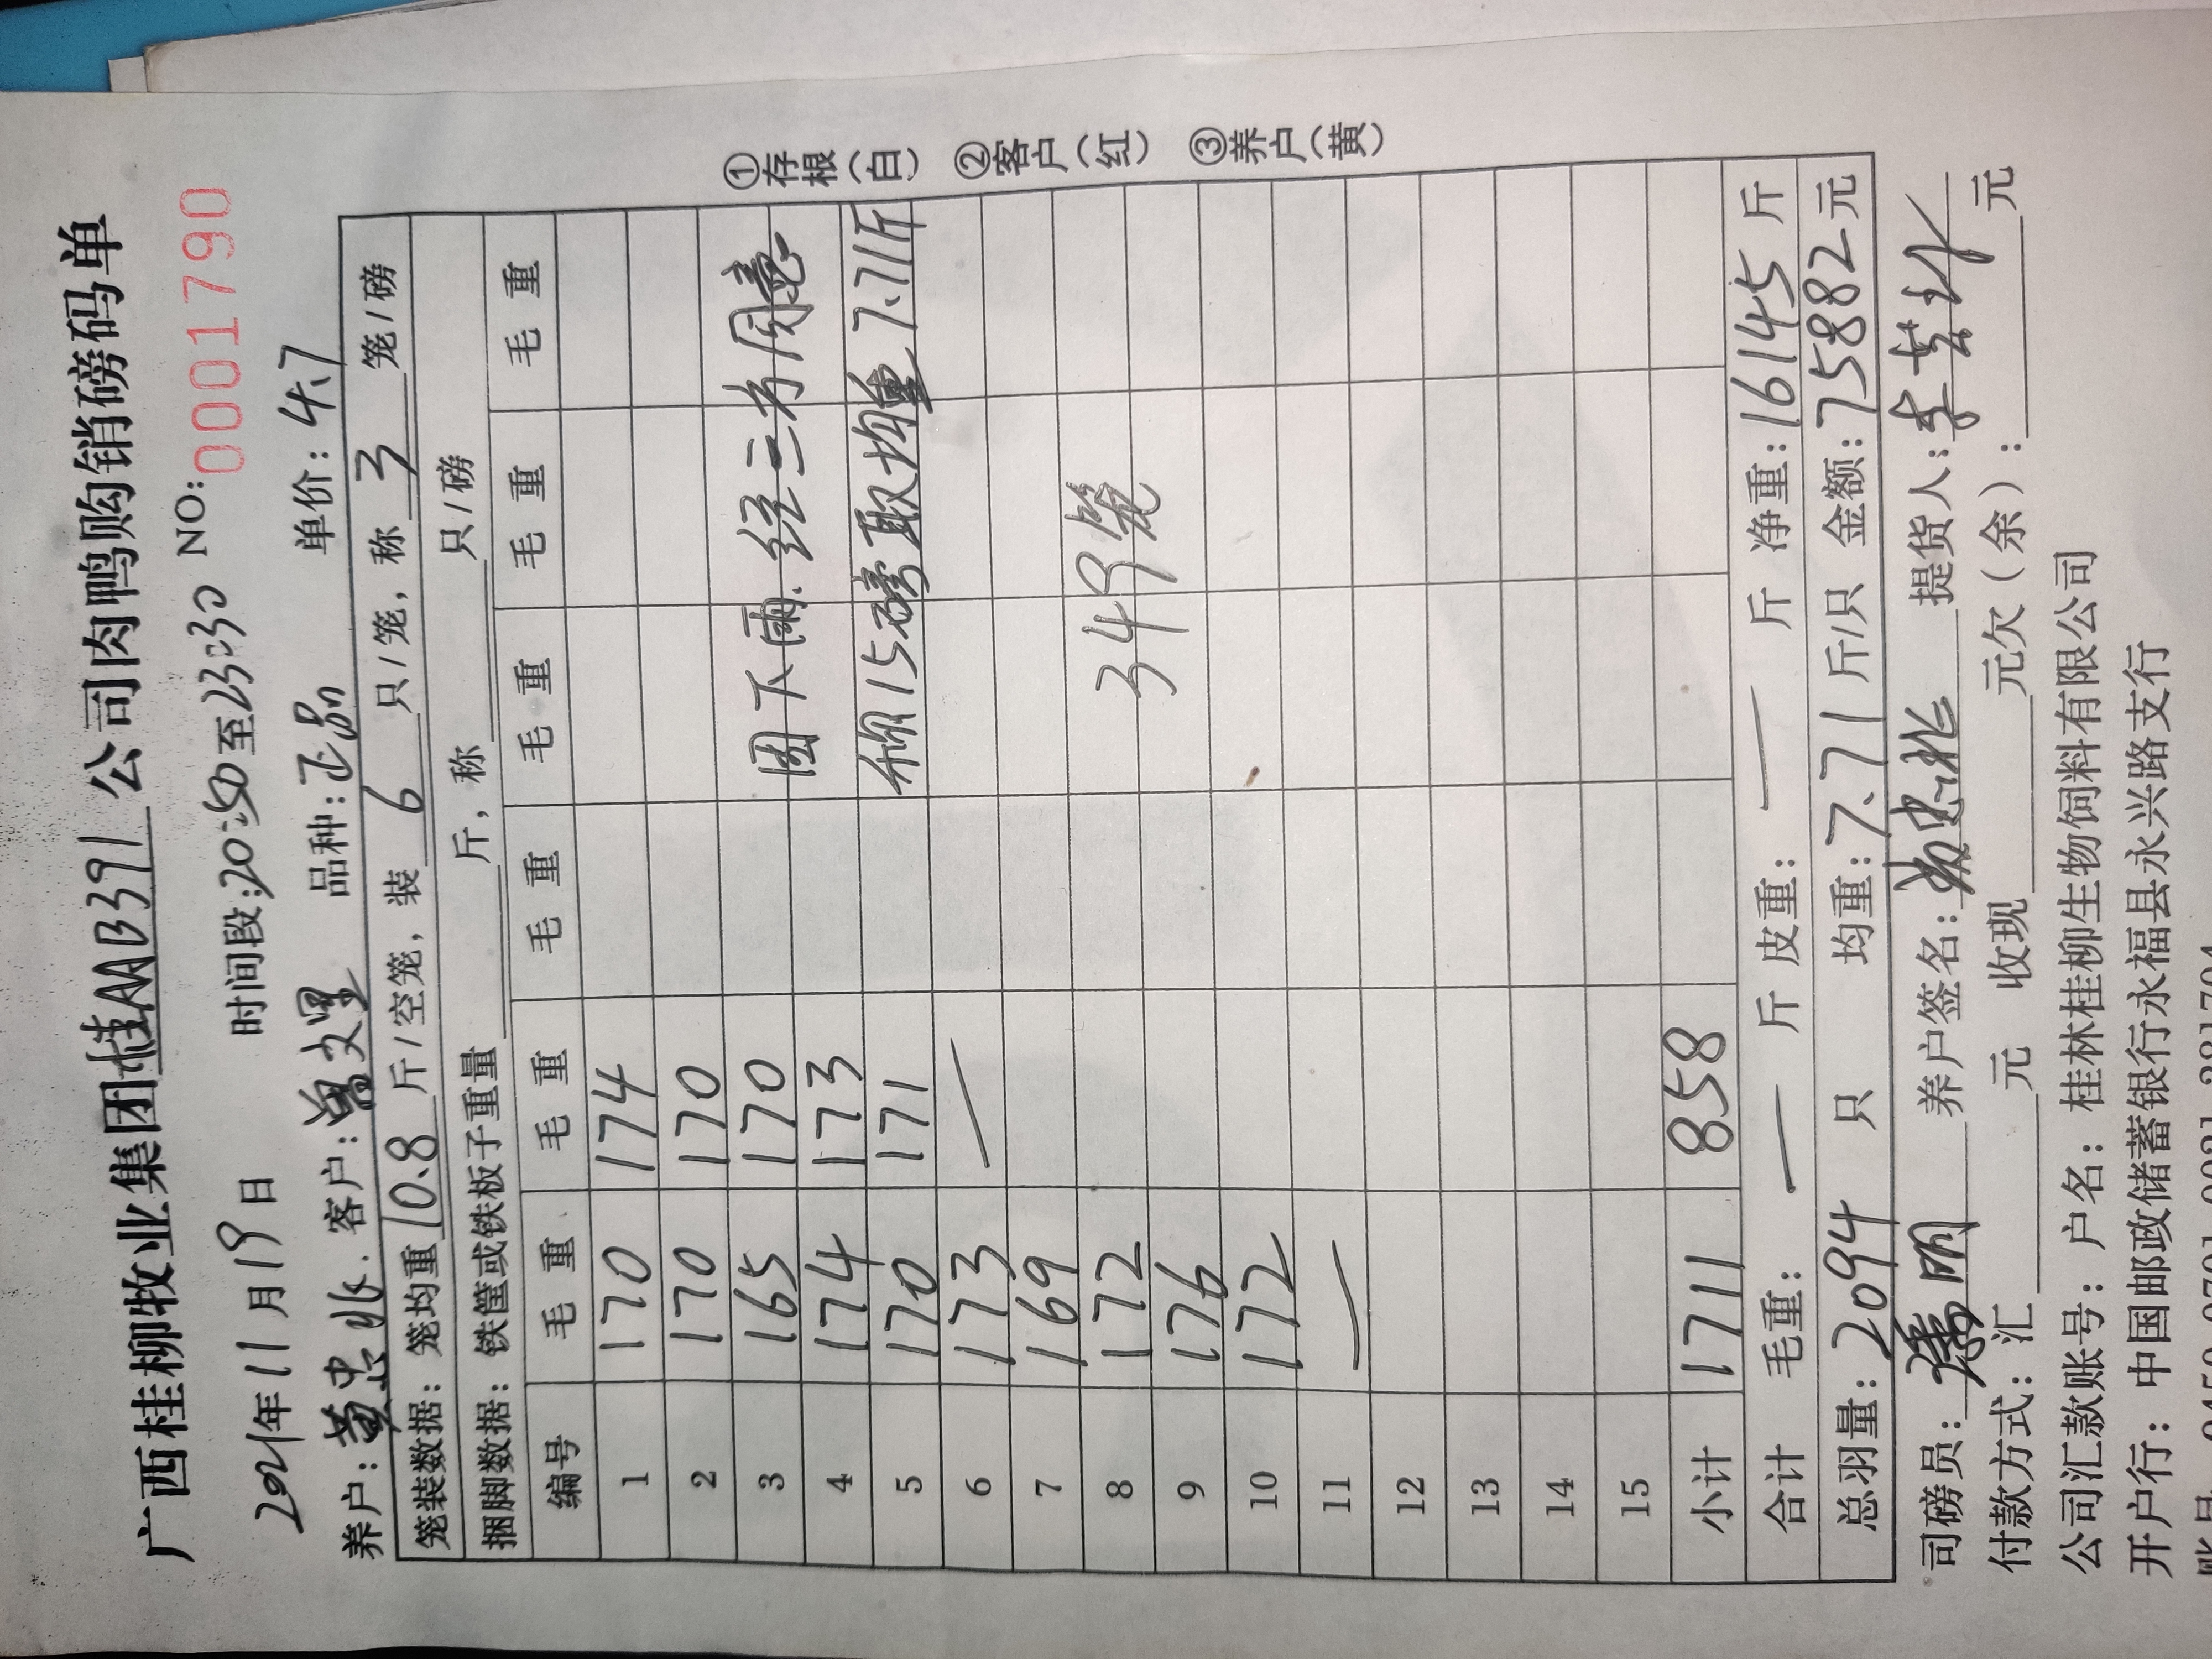 广西桂柳牧业集团桂AAB391公司肉鸭购销磅码单
2021年11月19日 时间段:20:50至23:30 NO:0001790
养户:黄忠兆 客户:曾文 品种:正品 单价:4.7
笼装数据: 笼均重10.8斤/空笼,装6只/笼,称3笼/磅
捆脚数据: 铁筐或铁板子重量 斤,称 只/磅
编号 毛重 毛重 毛重 毛重 毛重 毛重
1 170 174
2 170 170
3 165 170 因下雨.经三方同意
4 174 173
5 170 171 称15磅取均重7.71斤
6 173 —
7 169
8 172 349笼
9 176
10 172
11 —
12
13
14
15
小计 1711 858
合计 毛重: — 斤 皮重: — 斤 净重:16145斤
总羽量:2094只 均重:7.71斤/只 金额:75882元
司磅员: 明 养户签名:黄忠兆 提货人:李
付款方式:汇 元 收现 元欠(余): 元
公司汇款账号:户名:桂林桂柳生物饲料有限公司
开户行:中国邮政储蓄银行永福县永兴路支行
①存根(白) ②客户(红) ③养户(黄)